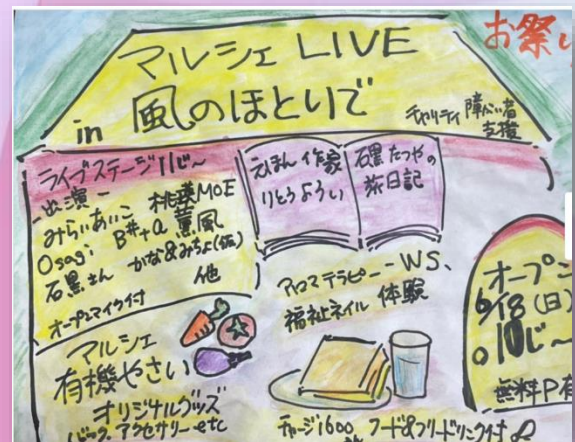 お祭り
マルシェ LIVE
in 風のほとりで
チャリティ 障がい者
支援
ライブステージ11じ〜
-出演-
みらいあいこ 桃瑛MOE
Osagi B#+a 薫風
石黒さん かな&みちよ(仮)
他
オープンマイク付
えほん作家
りとうようい
石黒たつやの
旅日記
アロマテラピーWS、
福祉ネイル 体験
オープン
6/18(日)
10じ〜
無料P有
マルシェ
有機やさい
オリジナルグッズ
バッグ アクセサリー etc
チャージ1600 フード&フリードリンク付